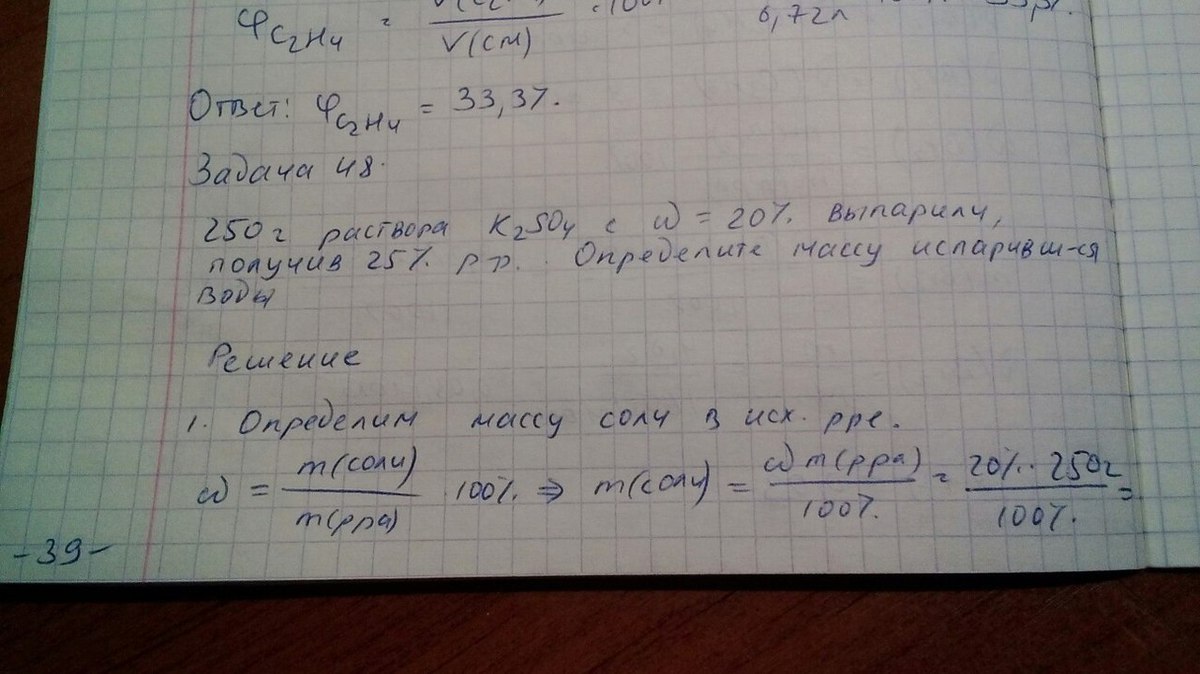 φC₂H₄ = V(C₂H₄) / V(см)
6,72л
Ответ: φC₂H₄ = 33,3%.
Задача 48.
250г раствора K₂SO₄ с ω = 20% выпарили,
получив 25% р-р. Определите массу испаривш-ся
воды
Решение
1. Определим массу соли в исх. рре.
ω = m(соли) / m(рра) · 100% ⇒ m(соли) = ω m(рра) / 100% = 20% · 250г / 100% =
-39-